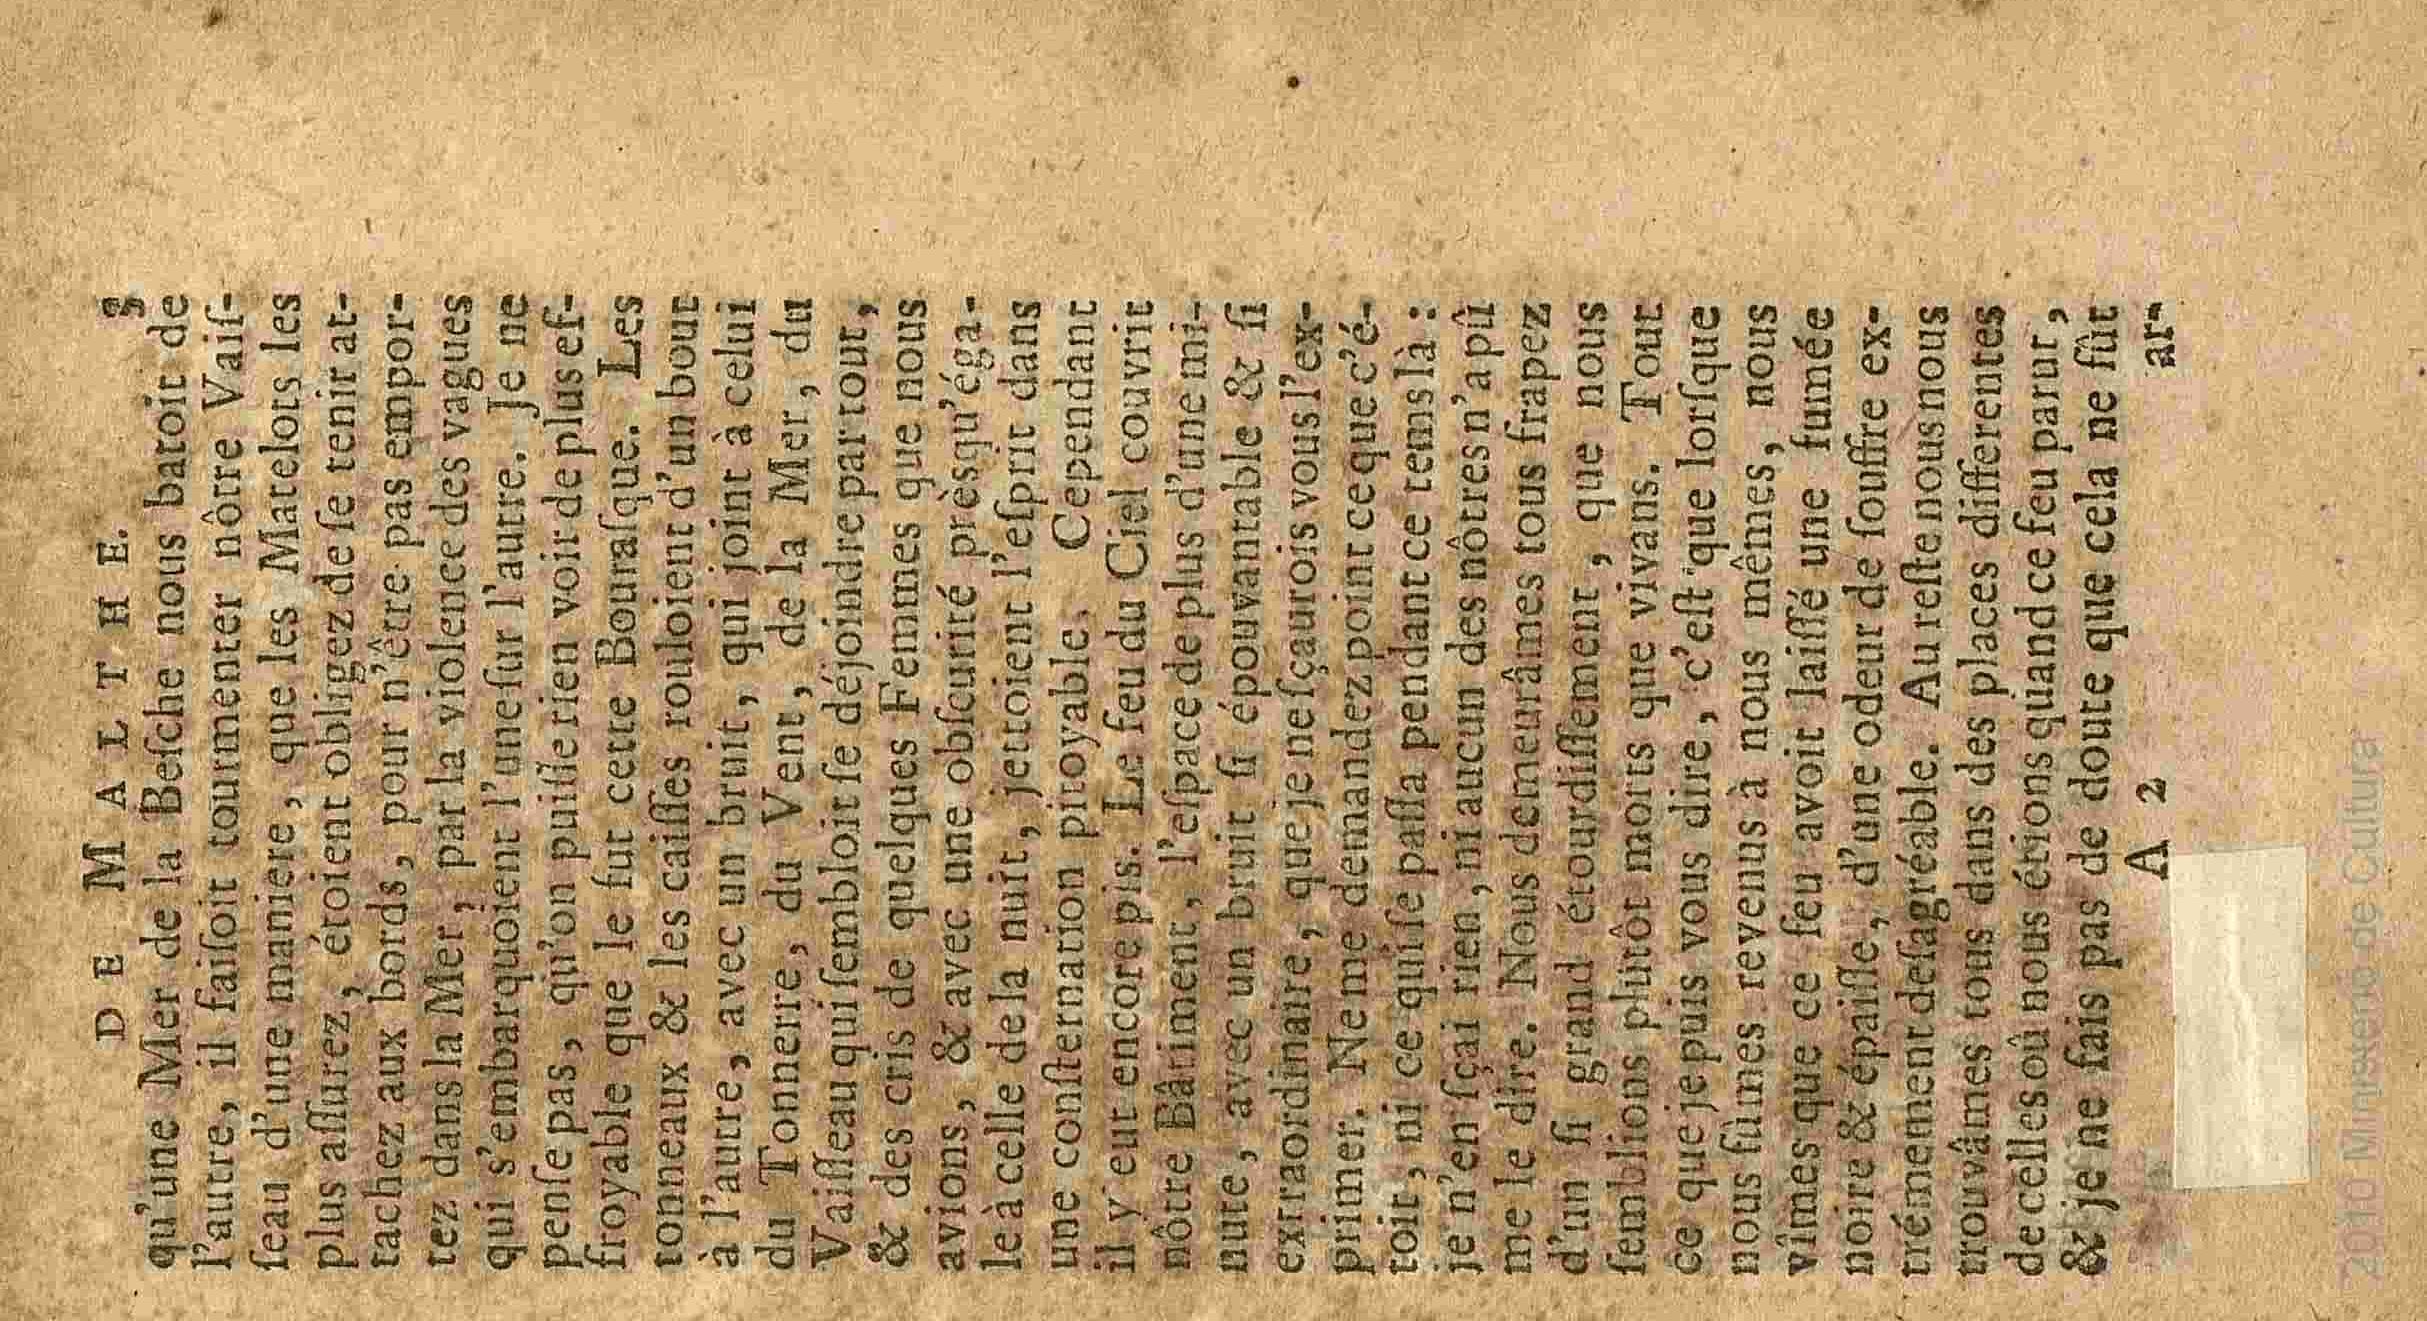 DE MALTHE. 3
qu'une Mer de la Beſche nous batoit de
l'autre, il faiſoit tourmenter nôtre Vaiſ-
ſeau d'une maniere, que les Matelots les
plus aſſurez, étoient obligez de ſe tenir at-
tachez aux bords, pour n'être pas empor-
tez dans la Mer, par la violence des vagues
qui s'embarquoient l'une ſur l'autre. Je ne
penſe pas, qu'on puiſſe rien voir de plus ef-
froyable que le fut cette Bouraſque. Les
tonneaux & les caiſſes rouloient d'un bout
à l'autre, avec un bruit, qui joint à celui
du Tonnerre, du Vent, de la Mer, du
Vaiſſeau qui ſembloit ſe déjoindre par tout,
& des cris de quelques Femmes que nous
avions, & avec une obſcurité prèsqu'éga-
le à celle de la nuit, jettoient l'eſprit dans
une conſternation pitoyable. Cependant
il y eut encore pis. Le feu du Ciel couvrit
nôtre Bâtiment, l'eſpace de plus d'une mi-
nute, avec un bruit ſi épouvantable & ſi
extraordinaire, que je ne ſçaurois vous l'ex-
primer. Ne me demandez point ce que c'é-
toit, ni ce qui ſe paſſa pendant ce tems là:
je n'en ſçai rien, ni aucun des nôtres n'a pû
me le dire. Nous demeurâmes tous frapez
d'un ſi grand étourdiſſement, que nous
ſemblions plutôt morts que vivans. Tout
ce que je puis vous dire, c'eſt que lorſque
nous fûmes revenus à nous mêmes, nous
vîmes que ce feu avoit laiſſé une fumée
noire & épaiſſe, d'une odeur de ſouffre ex-
trémement deſagréable. Au reſte nous nous
trouvâmes tous dans des places differentes
de celles où nous étions quand ce feu parut,
& je ne fais pas de doute que cela ne fût
A 2 ar-
2010 Ministerio de Cultura